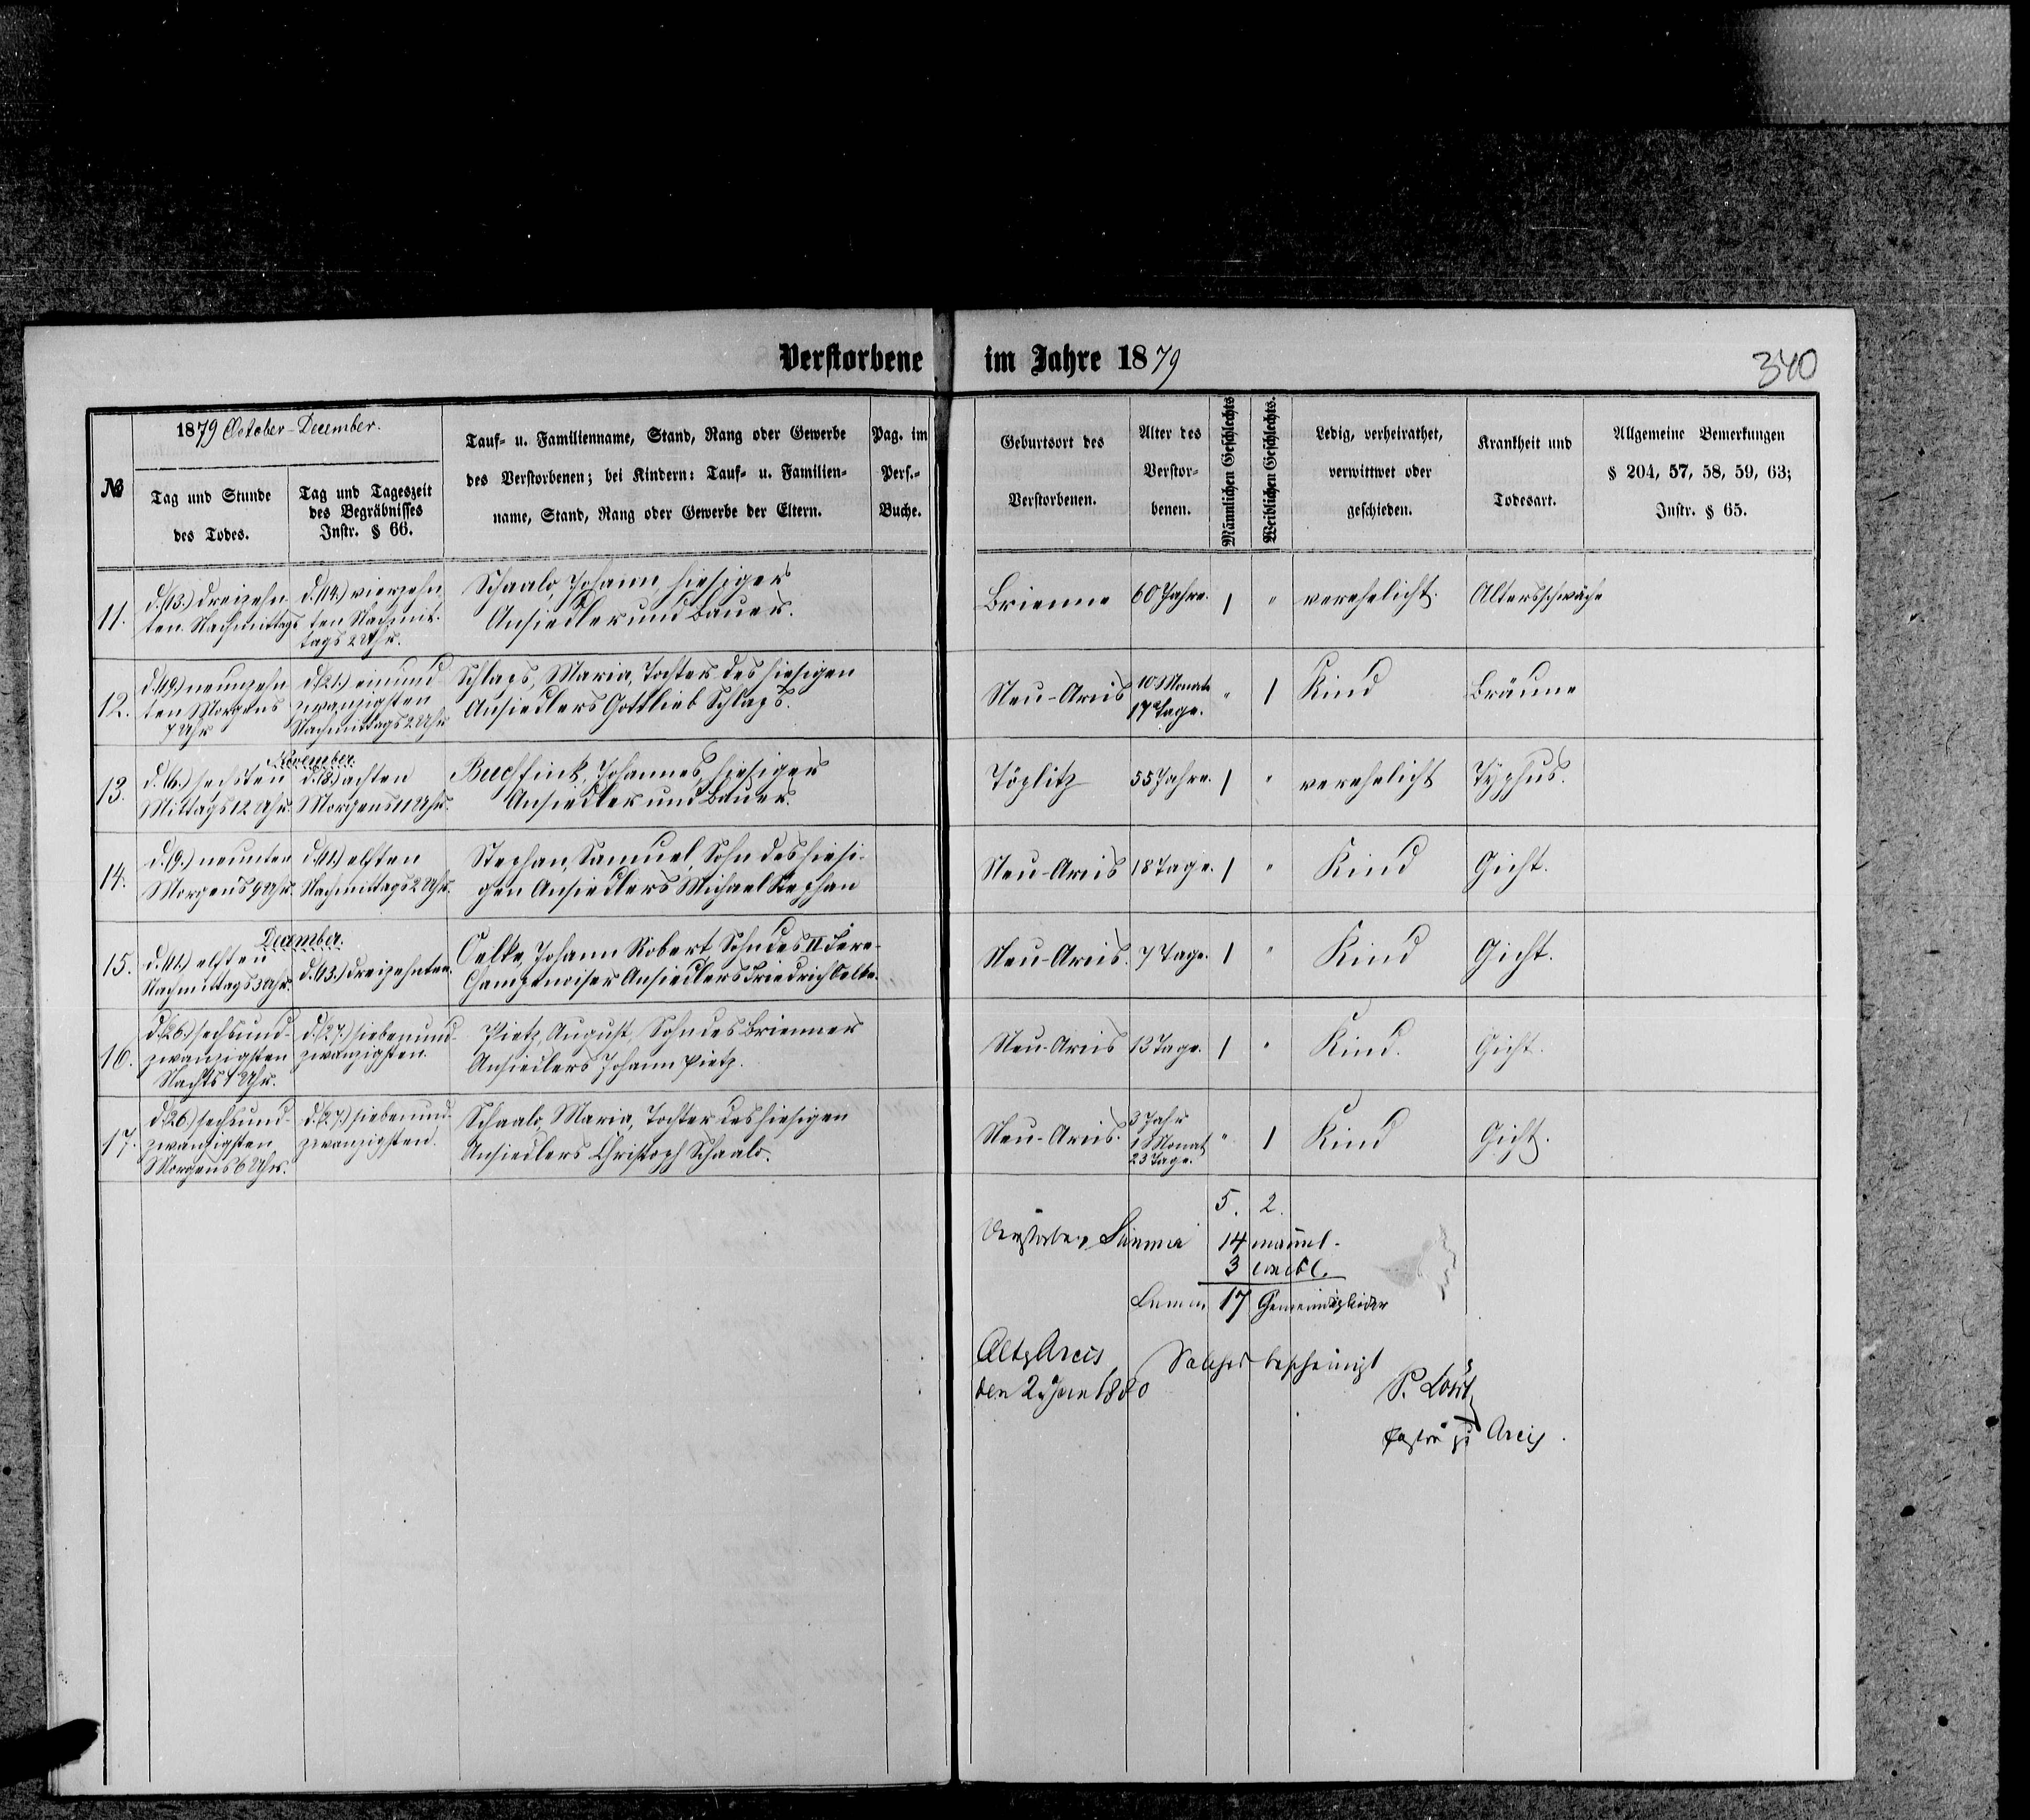 Verstorbene im Jahre 1879
340
№
1879 October-December.
Tag und Stunde
des Todes.
Tag und Tageszeit
des Begräbnisses
Instr. § 66.
Tauf- u. Familienname, Stand, Rang oder Gewerbe
des Verstorbenen; bei Kindern: Tauf- u. Familien-
name, Stand, Rang oder Gewerbe der Eltern.
Pag. im
Pers.-
Buche.
Geburtsort des
Verstorbenen.
Alter des
Verstor-
benen.
Männlichen Geschlechts
Weiblichen Geschlechts.
Ledig, verheirathet,
verwittwet oder
geschieden.
Krankheit und
Todesart.
Allgemeine Bemerkungen
§ 204, 57, 58, 59, 63;
Instr. § 65.
11.
d. (13.) dreizehn
ten Nachmittags
d. (14.) vierzehn
ten Nachmit-
tags 2 Uhr.
Schaalo, Johann hiesiger
Ansiedler und Bauer.
Brienne
60 Jahre.
1
"
verehelicht.
Altersschwäche
12.
d. (19.) neunzehn
ten Morgens
7 Uhr
d. (21.) einund
zwanzigsten
Nachmittags 2 Uhr
Schlaps, Maria, Tochter des hiesigen
Ansiedlers Gottlieb Schlaps.
Neu-Arcis
10 Monate
17 Tage.
"
1
Kind
Bräune
November.
13.
d. (6.) sechsten
Mittags 12 Uhr.
d. (8.) achten
Morgens 11 Uhr.
Buchfink, Johannes, hiesiger
Ansiedler und Bauer.
Töplitz
55 Jahre.
1
"
verehelicht
Typhus.
14.
d. (9.) neunten
Morgens 9 Uhr.
d. (11.) elften
Nachmittags 2 Uhr.
Stephan, Samuel, Sohn des hiesi-
gen Ansiedlers Michael Stephan
Neu-Arcis
18 Tage.
1
"
Kind
Gicht.
December.
15.
d. (11.) elften
Nachmittags 3 Uhr.
d. (13.) dreizehnten.
Oelke, Johann Robert, Sohn des II Fere-
Champenoiser Ansiedlers Friedrich Oelke.
Neu-Arcis.
7 Tage.
1
"
Kind
Gicht.
16.
d. (26.) sechsund-
zwanzigsten
Nachts 1 Uhr.
d. (27.) siebenund-
zwanzigsten.
Pietz, August, Sohn des Brienner
Ansiedlers Johann Pietz.
Neu-Arcis
13 Tage.
1
"
Kind.
Gicht.
17.
d. (26.) sechsund-
zwanzigsten
Morgens 6 Uhr.
d. (27.) siebenund-
zwanzigsten.
Schaalo, Maria, Tochter des hiesigen
Ansiedlers Christoph Schaalo.
Neu-Arcis.
3 Jahr
1 Monat
23 Tage.
"
1
Kind
Gicht.
5. 2.
Verstorben Summa 14 männl.
3 weibl.
Summa 17 Gemeindeglieder
Alt Arcis
den 2 Jan 1880
Solches bescheinigt
P. Lösit
Pastor zu Arcis.